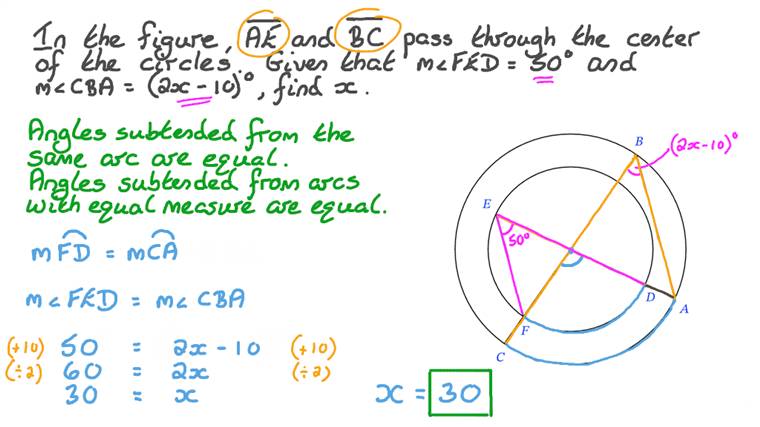 In the figure, AE and BC pass through the center
of the circles. Given that m∠FED = 50° and
m∠CBA = (2x-10)°, find x.
Angles subtended from the
same arc are equal.
Angles subtended from arcs
with equal measure are equal.
mFD = mCA
m∠FED = m∠CBA
(+10) 50 = 2x-10 (+10)
(÷2) 60 = 2x (÷2)
30 = x
x = 30
B
(2x-10)°
E
50°
D
A
F
C